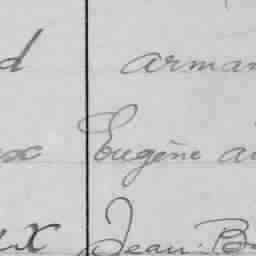 d arman
ex Eugène ai
ux Jean-B